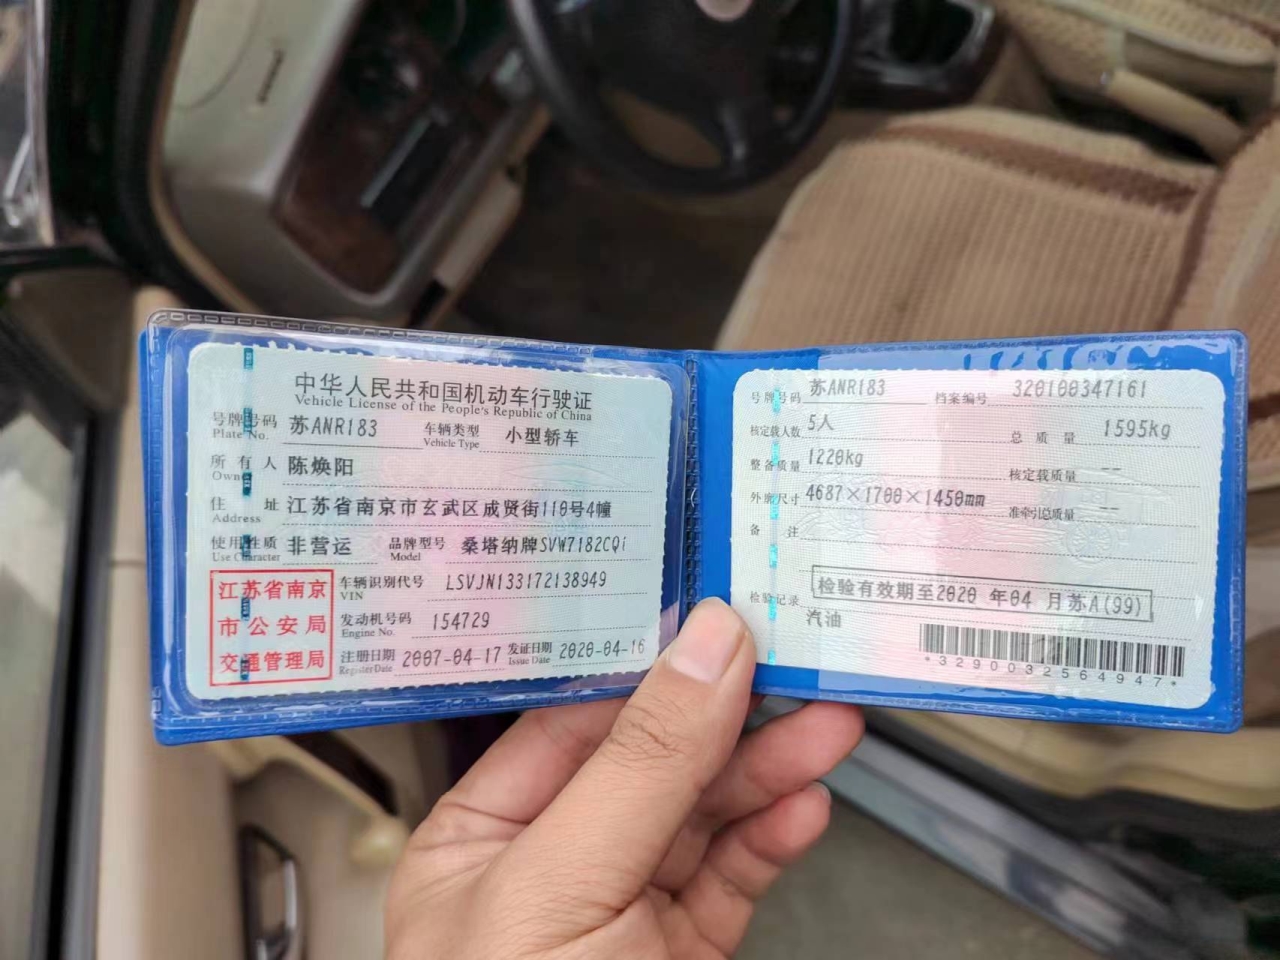 中华人民共和国机动车行驶证
Vehicle License of the People's Republic of China
号牌号码 苏ANR183 车辆类型 小型轿车
Plate No. Vehicle Type
所有人 陈焕阳
Owner
住址 江苏省南京市玄武区成贤街110号4幢
Address
使用性质 非营运 品牌型号 桑塔纳牌SVW7182CQi
Use Character Model
江苏省南京
市公安局
交通管理局
车辆识别代号 LSVJN133172138949
VIN
发动机号码 154729
Engine No.
注册日期 2007-04-17 发证日期 2020-04-16
Register Date Issue Date
号牌号码 苏ANR183 档案编号 320100347161
核定载人数 5人 总质量 1595kg
整备质量 1220kg 核定载质量 --
外廓尺寸 4687×1700×1450mm 准牵引总质量 --
备注
检验记录 检验有效期至2020年04月苏A(99)
汽油
*3290032564947*